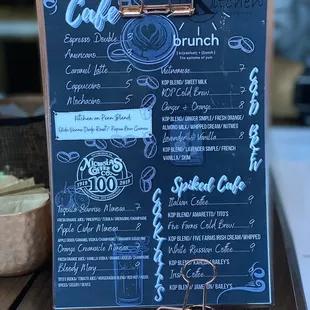 Cafe
Kitchen
brunch
Espresso Double 3
Americano
Caramel Latte 6
Cappuccino 5
Mochacino 5
Kitchen on Penn Blend
NICHOLAS
COFFEE CO.
1919 2019
100
Vietnamese 7
KOP BLEND/ SWEET MILK
KOP Cold Brew 7
Ginger + Orange 8
KOP BLEND/ GINGER SIMPLE/ FRESH ORANGE
ALMOND MILK/ WHIPPED CREAM/ NUTMEG
Lavender + Vanilla 8
KOP BLEND/ LAVENDER SIMPLE/ FRENCH
VANILLA/ SKIM
COLD BREW
COCKTAILS
Tequila Sunrise Mimosa 7
Apple Cider Mimosa 8
Orange Creamsicle Mimosa 9
Bloody Mary 9
Spiked Cafe
Italian Coffee 9
KOP BLEND/ AMARETTO/ TITO'S
Five Farms Cold Brew 9
KOP BLEND/ FIVE FARMS IRISH CREAM/ WHIPPED
White Russian Coffee 9
KOP BLEND/ KAHLUA/ BAILEY'S
Irish Coffee 9
KOP BLEND/ JAMESON/ BAILEY'S